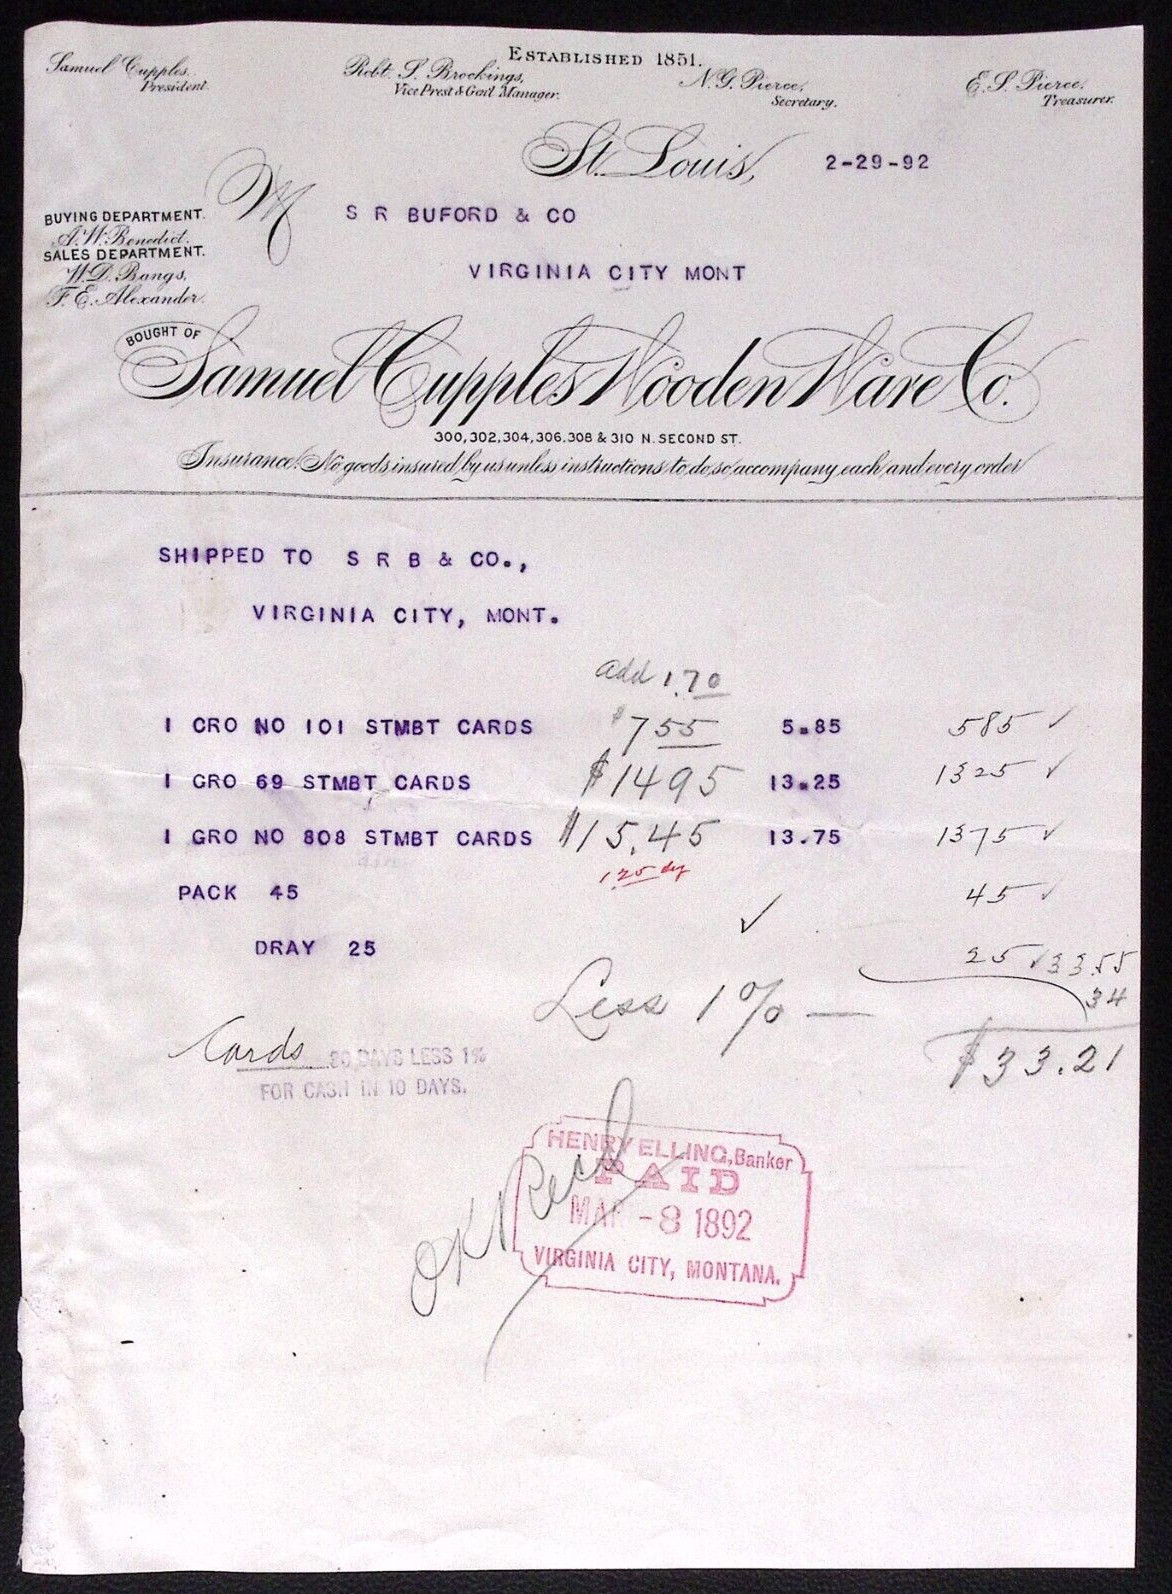 ESTABLISHED 1851.
Samuel Cupples.
President.
Robt. S. Brookings,
Vice Prest & Genl Manager.
N. G. Pierce,
Secretary.
E. S. Pierce,
Treasurer.
St. Louis, 2-29-92
M
S R BUFORD & CO
VIRGINIA CITY MONT
BUYING DEPARTMENT.
A. W. Benedict.
SALES DEPARTMENT.
W. D. Bangs,
F. E. Alexander.
BOUGHT OF
Samuel Cupples Wooden Ware Co.
300, 302, 304, 306. 308 & 310 N. SECOND ST.
Insurance! No goods insured by us unless instructions to do so accompany each and every order
SHIPPED TO S R B & CO.,
VIRGINIA CITY, MONT.
add 1.70
1 CRO NO 101 STMBT CARDS $7 55 5.85 585 ✓
1 GRO 69 STMBT CARDS $14 95 13.25 1325 ✓
1 GRO NO 808 STMBT CARDS $15.45 13.75 1375 ✓
125
PACK 45 45 ✓
✓
DRAY 25 25 ✓ 33.55
Less 1% — 34
$33.21
Cards 30 DAYS LESS 1%
FOR CASH IN 10 DAYS.
HENRY ELLING, Banker
PAID
MAR -8 1892
VIRGINIA CITY, MONTANA.
OK Recd